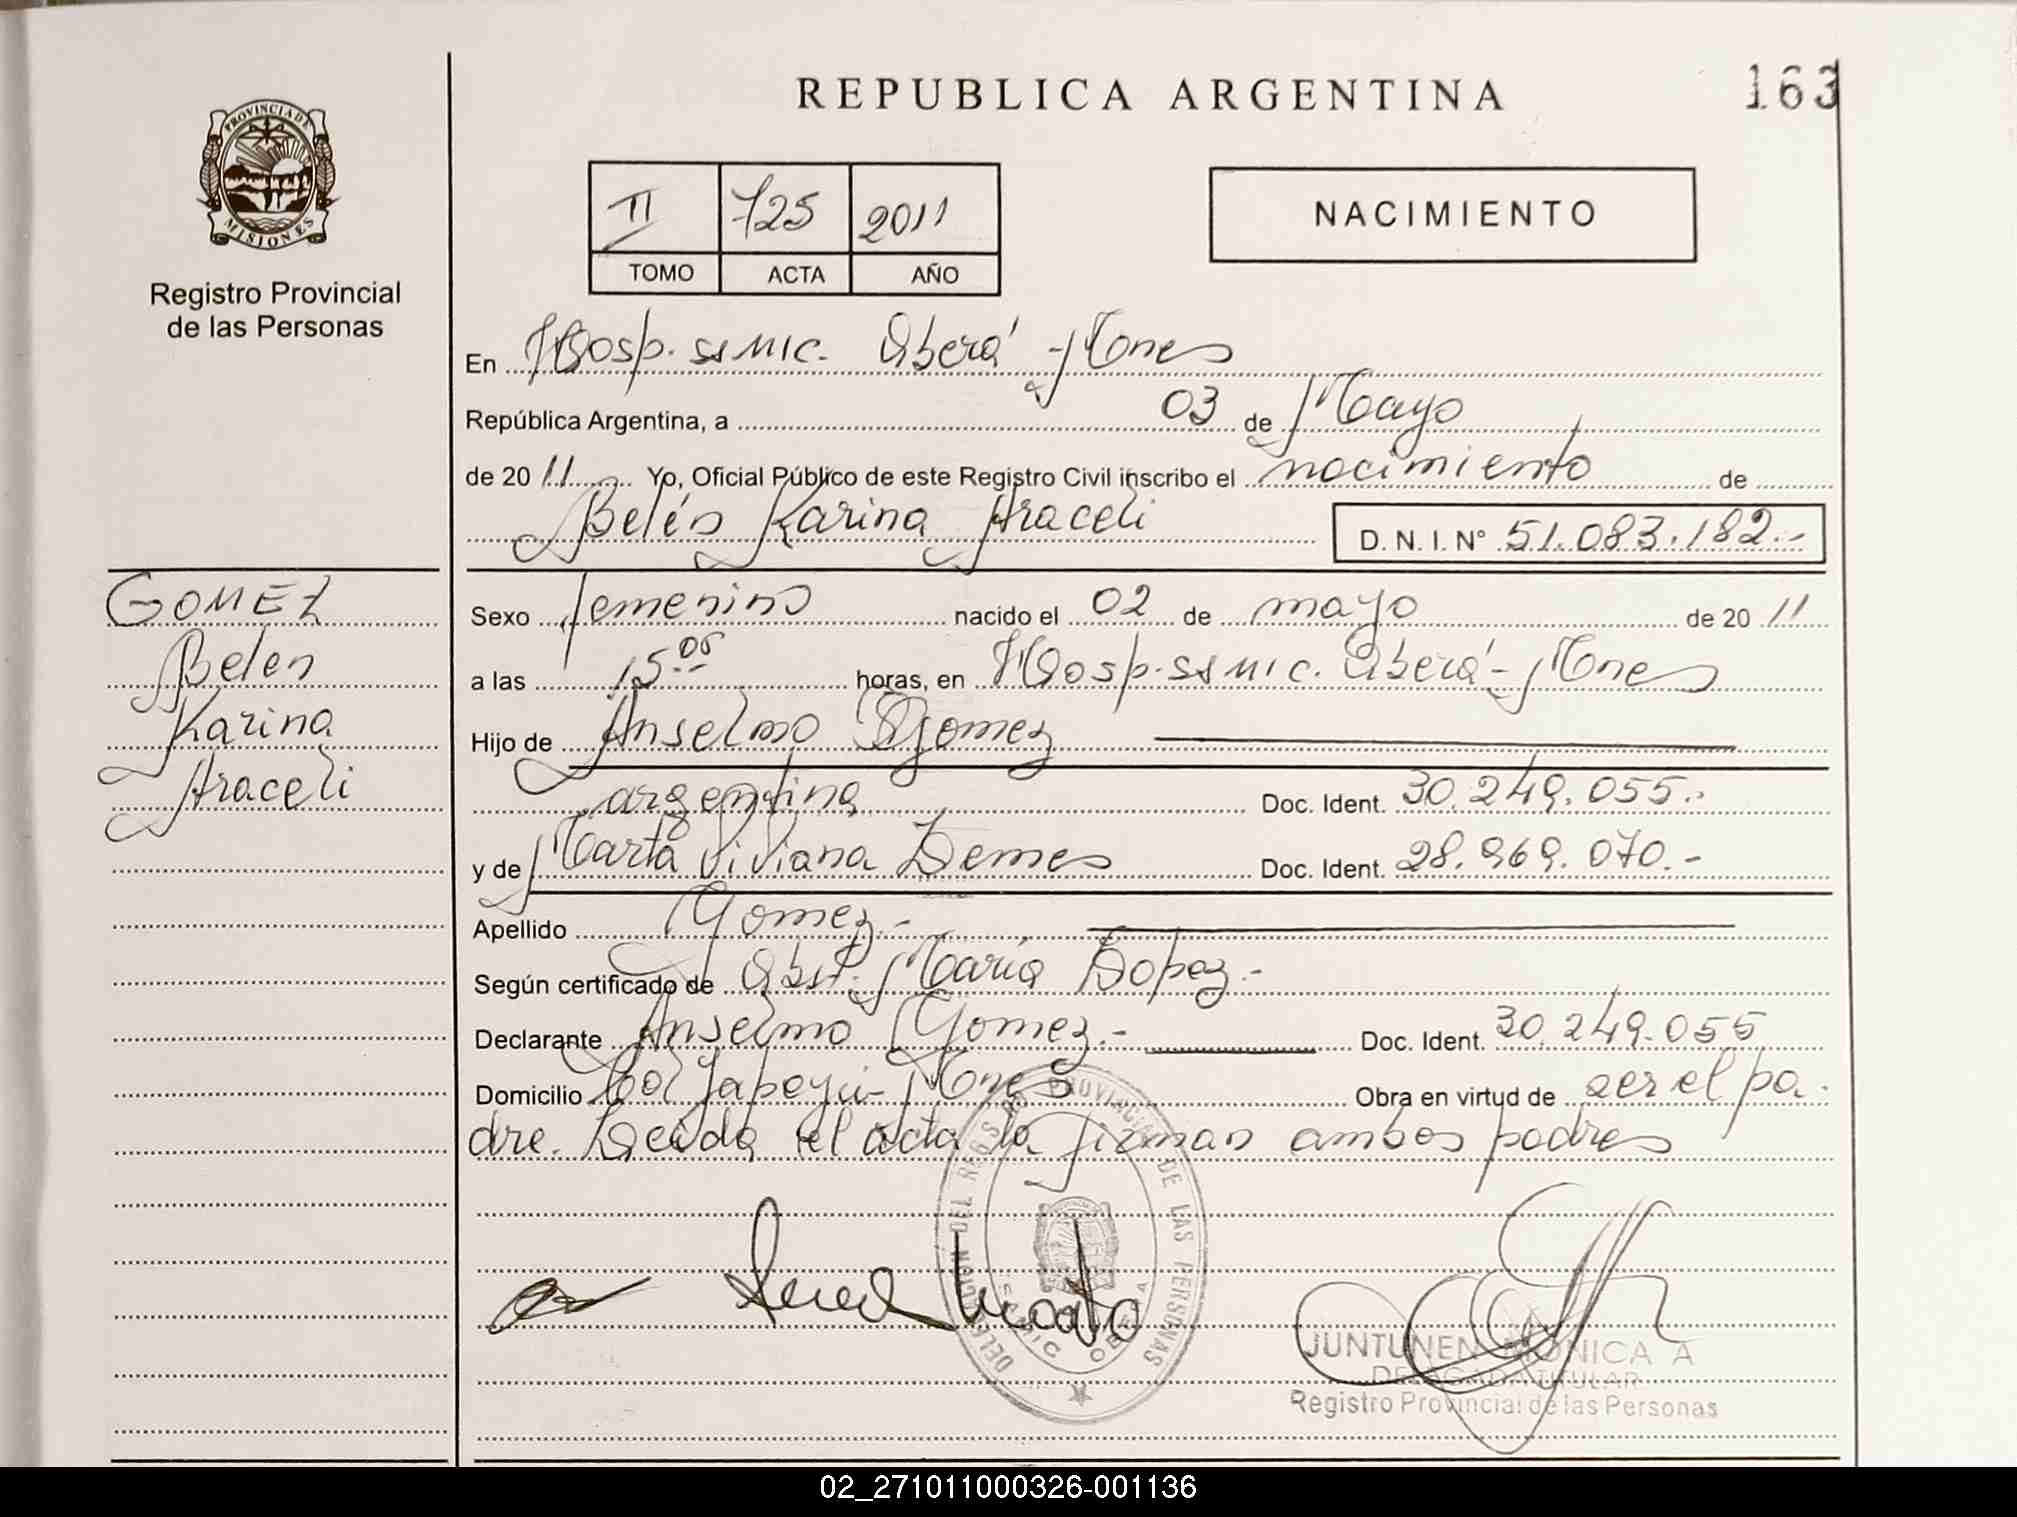 REPUBLICA ARGENTINA
163
PROVINCIA DE
MISIONES
Registro Provincial
de las Personas
II 725 2011
TOMO ACTA AÑO
NACIMIENTO
En Hosp. ss MIC. Oberá - Mnes
República Argentina, a 03 de Mayo
de 2011 Yo, Oficial Público de este Registro Civil inscribo el nacimiento de
Belén Karina Araceli D.N.I. N° 51.083.182.-
GOMEZ
Belen
Karina
Araceli
Sexo femenino nacido el 02 de mayo de 2011
a las 15.05 horas, en Hosp. ss MIC. Oberá - Mnes
Hijo de Anselmo Gomez
argentina Doc. Ident. 30.249.055.-
y de Marta Viviana Demes Doc. Ident. 28.969.070.-
Apellido Gomez.-
Según certificado de Obst. María Lopez.-
Declarante Anselmo Gomez.- Doc. Ident. 30.249.055
Domicilio Col Yapeyú - Mnes Obra en virtud de ser el pa-
dre. Leida el acta la firman ambos padres
DELEGACION DEL REG. PROVINCIAL DE LAS PERSONAS
OBERA
JUNTUNEN MONICA A
DELEGADA TITULAR
Registro Provincial de las Personas
02_271011000326-001136